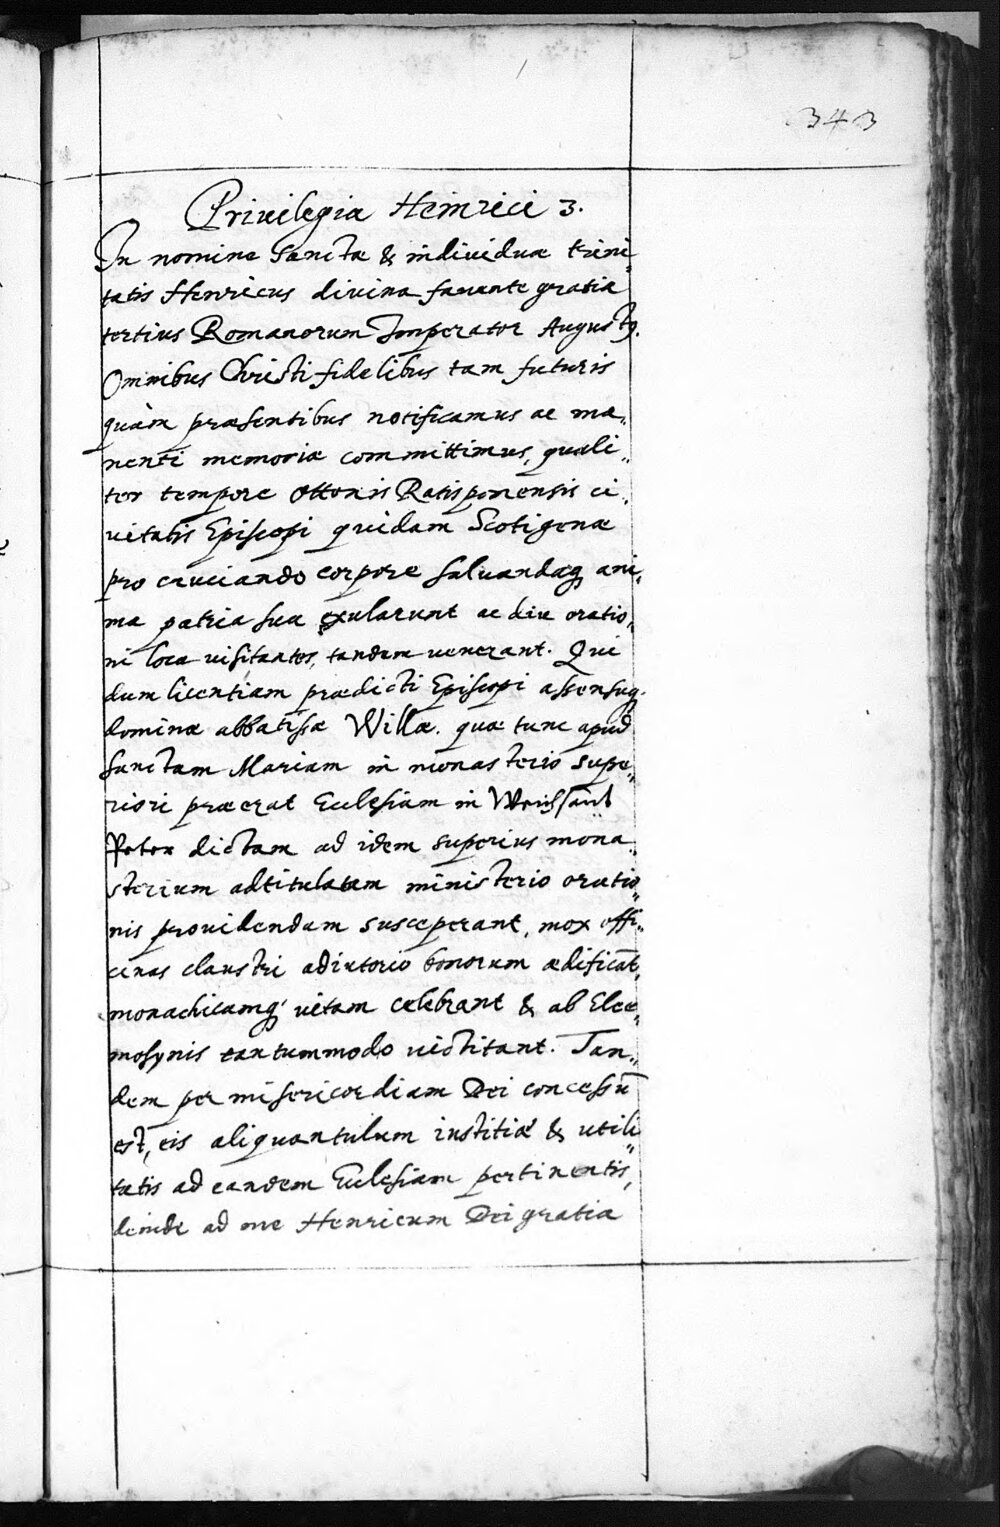 343
Privilegia Heinrici 3.
In nomine Sanctæ & individuæ trini„
tatis Henricus divina favente gratia
tertius Romanorum Imperator Augustꝯ.
Omnibus Christi fidelibus tam futuris
quàm præsentibus notificamus ac ma„
nenti memoriæ committimus, quali„
ter tempore Ottonis Ratisponensis ci„
uitatis Episcopi quidam Scotigenæ
pro cruciando corpore saluandaq́ ani„
ma patria sua exularunt ac diu oratio„
ni loca uisitantes, tandem venerant. Qui
dum licentiam prædicti Episcopi assensuq́.
dominæ abbatissæ Willæ. quæ tunc apud
sanctam Mariam in monasterio supe„
riori præerat Ecclesiam in Weihsant
Peter dictam ad idem superius mona„
sterium adtitulatam ministerio oratio„
nis providendam susceperant, mox offi„
cinas claustri adiutorio bonorum ædificāt,
monachicamq́ uitam celebrant & ab Elee„
mosynis tantummodo uictitant. Tan„
dem per misericordiam Dei concessū
est, eis aliquantulum iustitiæ & utili„
tatis ad eandem Ecclesiam pertinentis,
deinde ad me Henricum Dei gratia